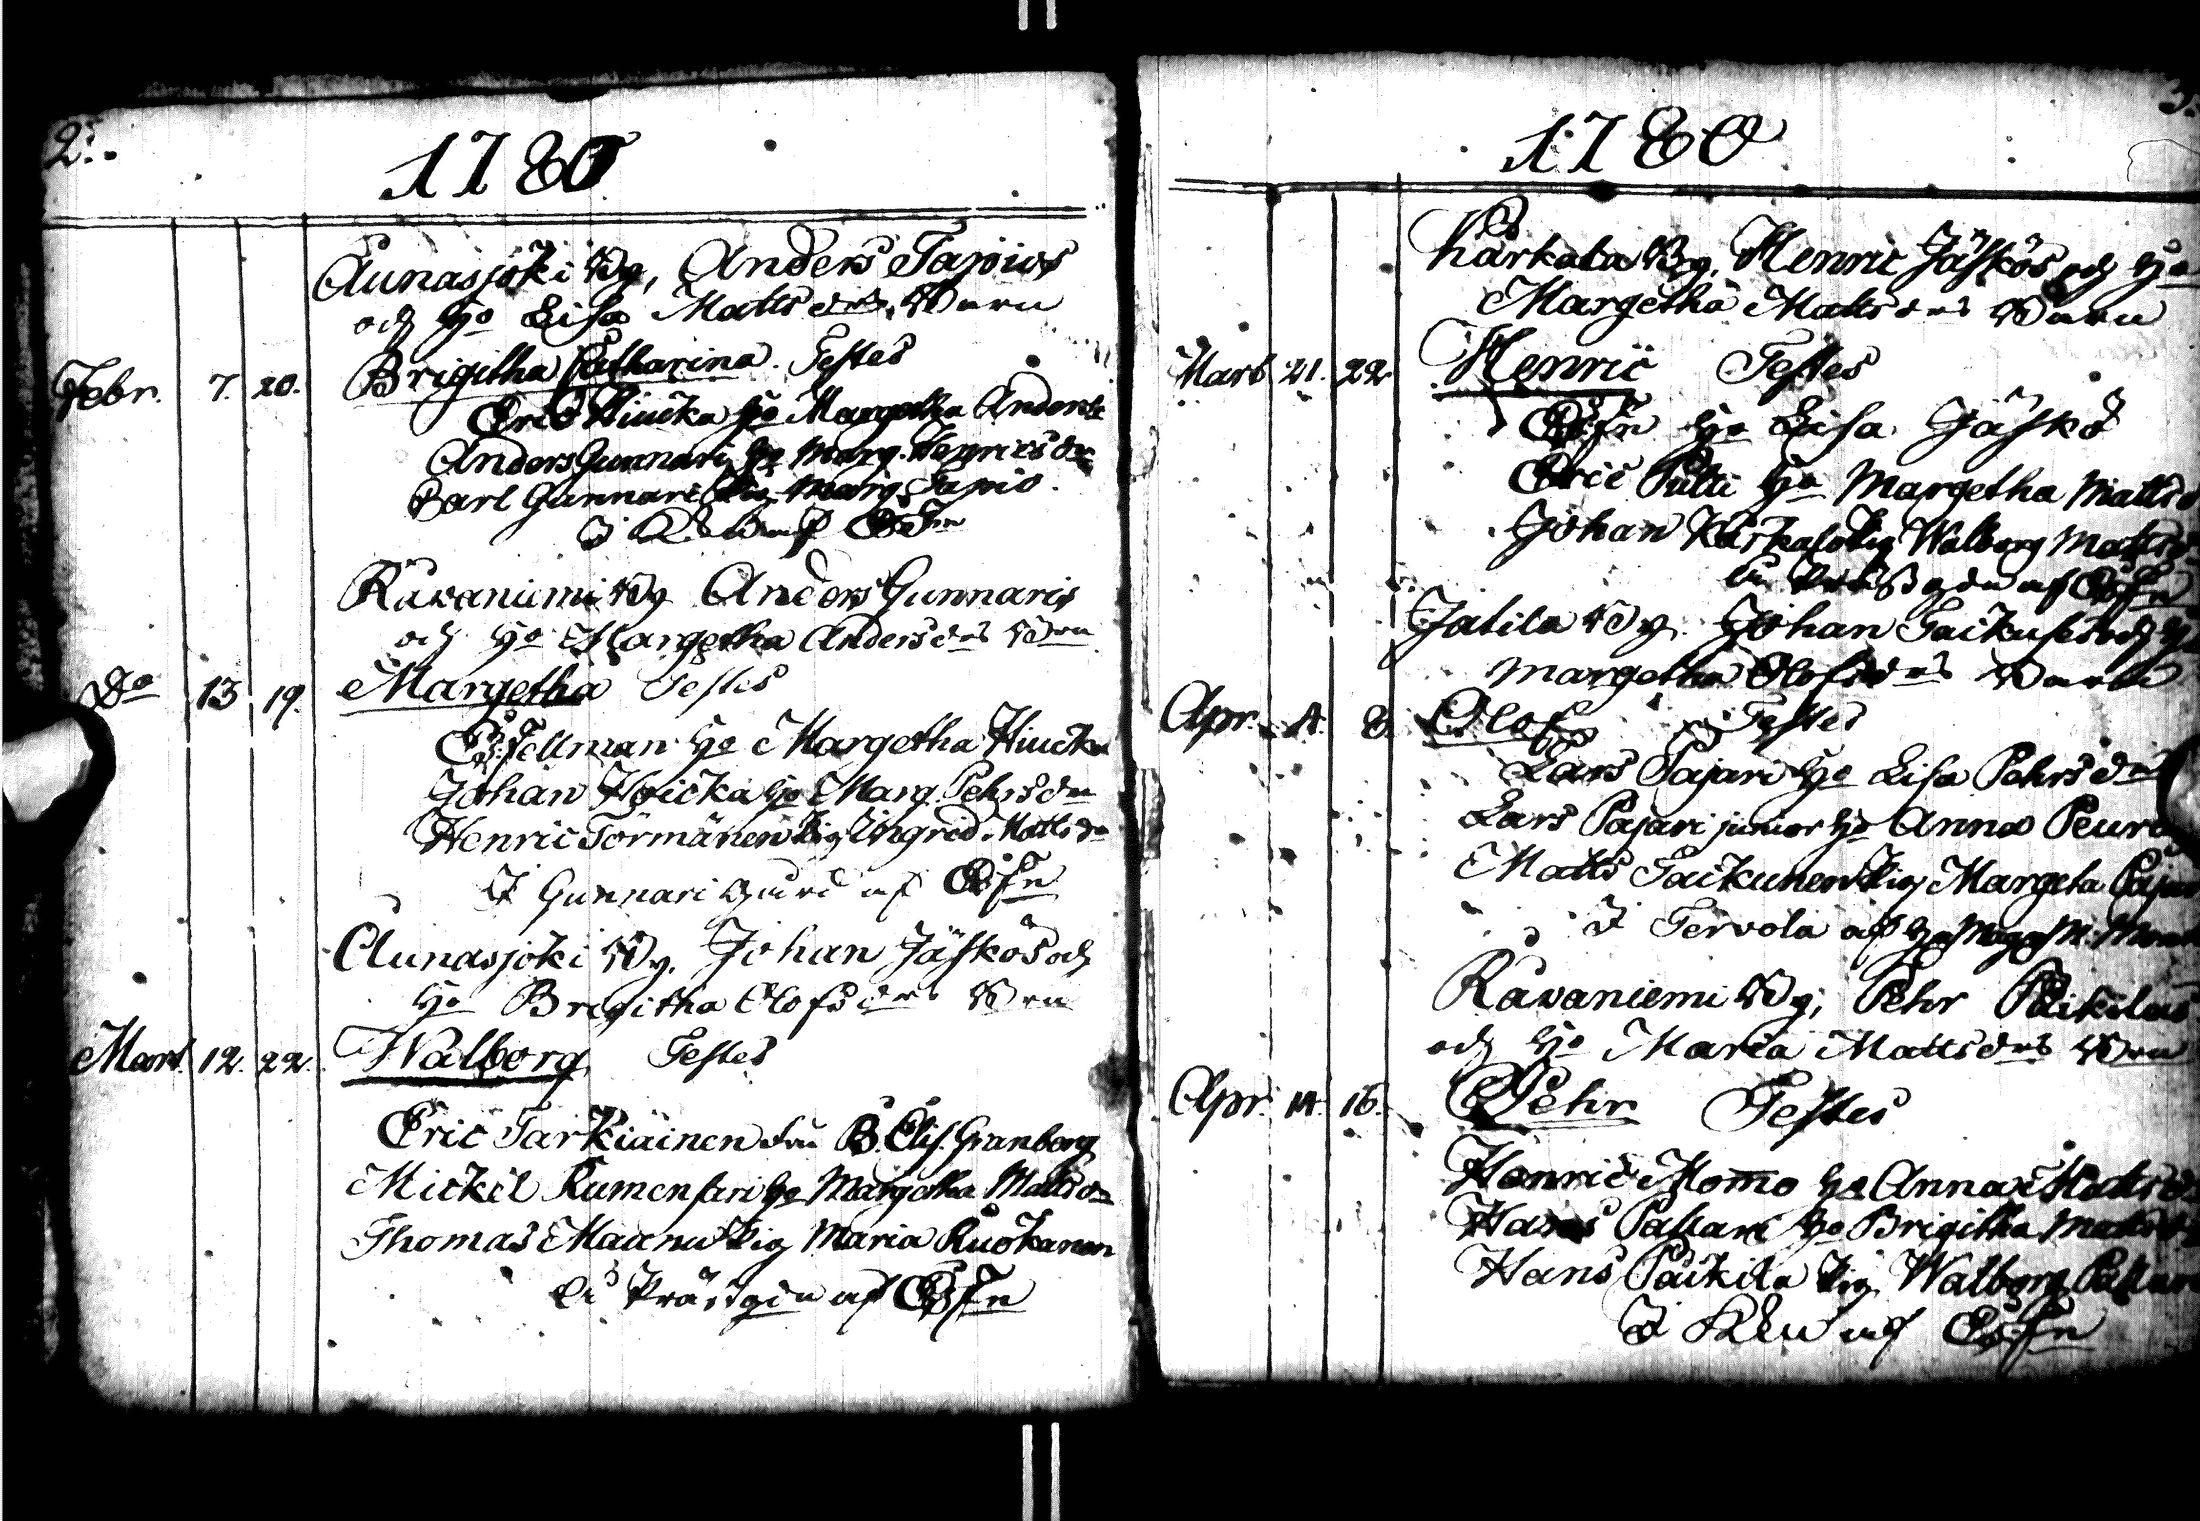 2.
1780
Aunasjoki By, Anders Tapios
och Ho Lisa Matts drs Barn
Febr. 7. 20. Brigitha Catharina. Testes
Eric Hiucka Ho Margetha Anders
Anders Gunnari Ho Marg. Henricsdr
Carl Gunnari Pig. Marg. Tapio.
Ravaniemi By Anders Gunnaris
och Ho Margetha Andersdrs Brn
Do 13 19. Margetha Testes
Es: Fellman Ho Margetha Hiucka
Johan Hoicka Ho Marg. Pehrsdr
Henric Törmänen Pig Ingrid Mattsdr
I Gunnari gård af Es: Fn
Aunasjoki By. Johan Jäskös och
Ho Brigitha Olofsdrs Brn
Mart. 12. 22. Walborg Testes
Eric Tarkiäinen fru B. Elis. Granberg
Mickel Kumensari Ho Margetha Mattsdr
Thomas Maanu Pig Maria Ruokanen
i Prästgdn af Es: Fn
3.
1780
Härkola By, Henric Jäskös och Ho
Margetha Mattsdrs Barn
Mart 21. 22 Henric Testes
Es: Fn Ho Lisa Jäskö
Eric Pulli Ho Margetha Mattsd
Johan Pig Walborg Mattsd
af Es: Fn
Jatila By. Johan Taikuses och H
Margetha Olofsdrs Barn
Apr. 4. 8. Olof Testes
Lars Pajari Ho Lisa Pehrsdr
Lars Pajari junior Ho Anna Peura
Matts Taikunen Pig Margeta Pajar
I Tervola af
Ravaniemi By, Pehr Paikilas
och Ho Maria Mattsdrs Brn
Apr. 14. 16. Pehr Testes
Henric Mommo Ho Anna Mattsd
Hans Pallari Ho Brigitha Mattsd
Hans Paikila Pig Walborg Pallar
I Kku af Es: Fn